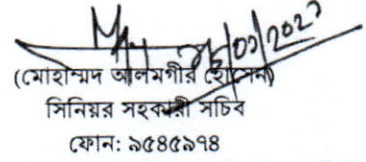 (মোহাম্মদ আলমগীর হোসেন)
সিনিয়র সহকারী সচিব
ফোন: ৯৫৪৫৯৭৪